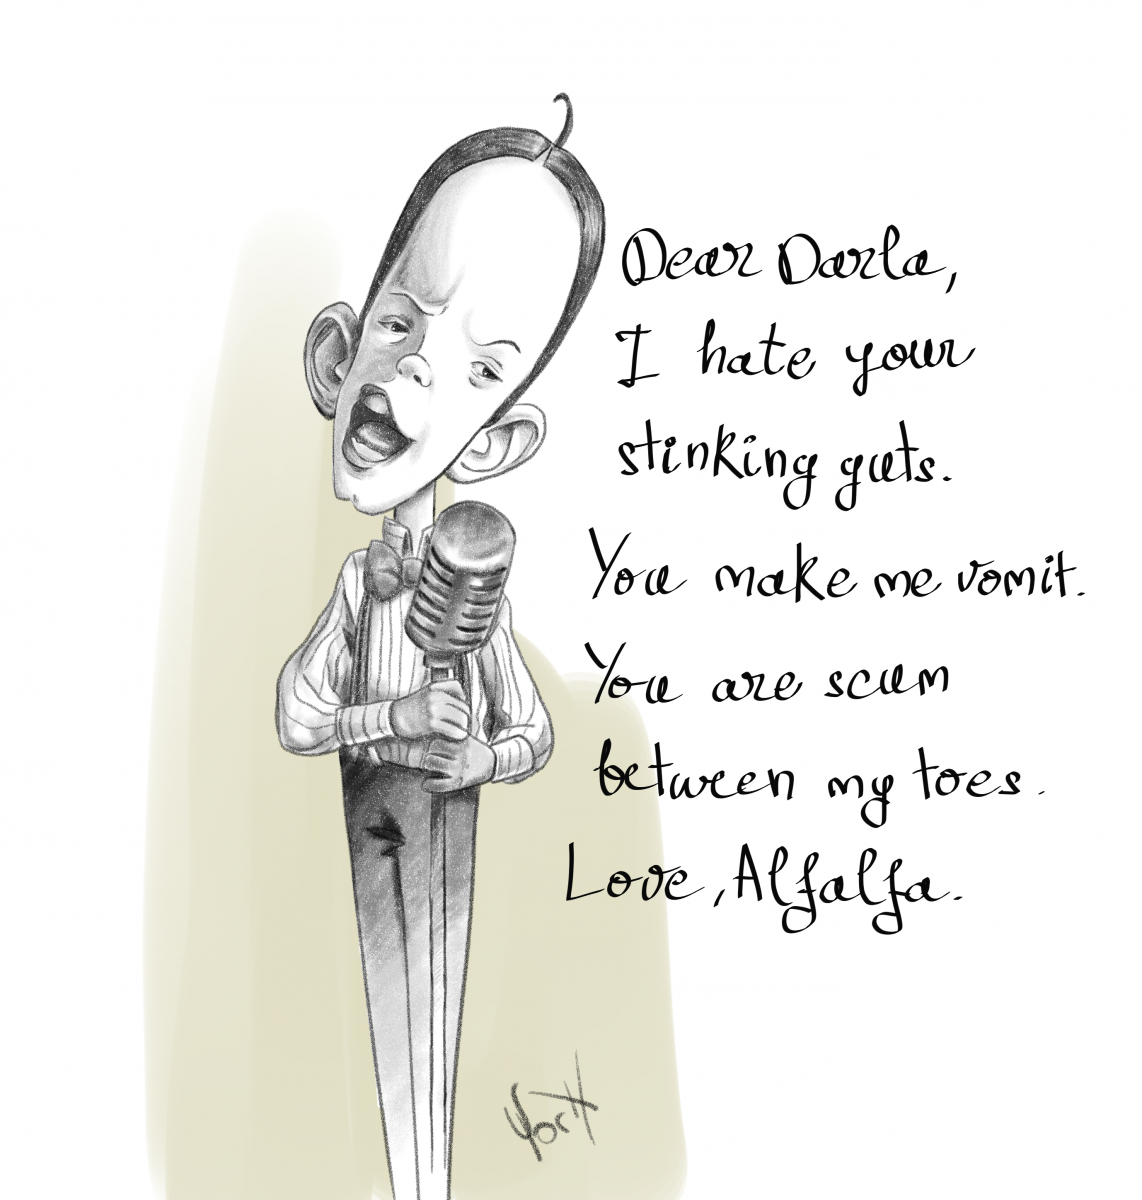 Dear Darla,
I hate your
stinking guts.
You make me vomit.
You are scum
between my toes.
Love, Alfalfa.